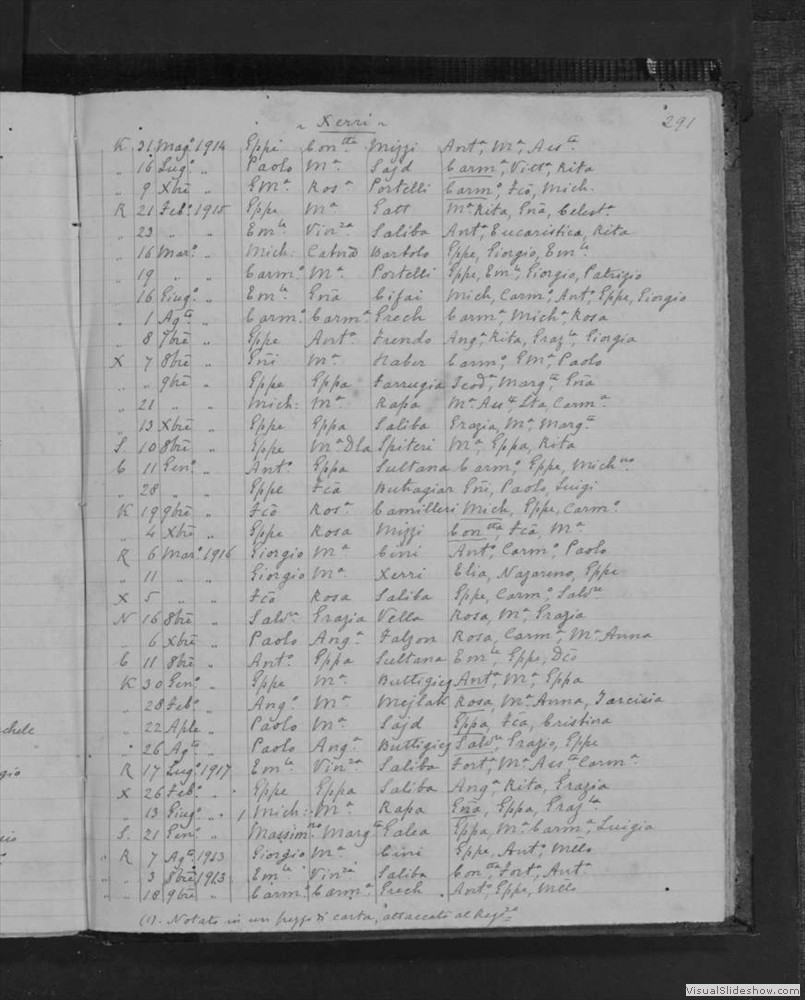 „ Xerri „
291
K 31 Mag.º 1914 Eppe Con.tta Mizzi Ant.ª, M.ª, Aus.ta
„ 16 Lug.º „ Paolo M.ª Sajd Carm.ª, Vitt.ª Rita
„ 9 Xbrē „ EM.ª Ros.ª Portelli Carm.º, Fcō, Mich.
R 21 Feb.º 1915 Eppe M.ª Gatt M.ª Rita, Gnā, Celest.ª
„ 23 „ „ Em.le Vin.za Saliba Ant.ª, Eucaristica, Rita
„ 16 Mar.º „ Mich: Catnā Bartolo Eppe, Giorgio, Em.le
„ 19 „ „ Carm.º M.ª Portelli Eppe, Em.le, Giorgio, Patrizio
16 Giug.º „ Em.le Gnā Cifai Mich, Carm.º, Ant.º, Eppe, Giorgio
„ 1 Ag.to „ Carm.º Carm.ª Grech Carm.ª, Mich.ª, Rosa
„ 8 7brē „ Eppe Ant.ª Frendo Ang.ª, Rita, Graz.la, Giorgia
X 7 8brē „ Gñi M.ª Haber Carm.º, EM.ª, Paolo
„ „ 9brē „ Eppe Eppa Farrugia Teod.ª, Marg.ta, Gnā
„ 21 „ „ Mich: M.ª Rapa M.ª Aus.ta, Lta, Carm.ª
„ 13 Xbrē „ Eppe Eppa Saliba Grazia, M.ª, Marg.ta
S 10 8brē „ Eppe M.ª Dla Spiteri M.ª, Eppa, Rita
C 11 Gen.º „ Ant.º Eppa Sultana Carm.º, Eppe, Mich.no
„ 28 „ „ Eppe Fcā Buhagiar Gñi, Paolo, Luigi
K 19 9brē „ Fcō Ros.ª Camilleri Mich, Eppe, Carm.º
„ 4 Xbrē „ Eppe Rosa Mizzi Con.tta, Fcā, M.ª
R 6 Mar.º 1916 Giorgio M.ª Cini Ant.º, Carm.º, Paolo
„ 11 „ „ Giorgio M.ª Xerri Elia, Nazareno, Eppe
X 5 „ „ Fcō Rosa Saliba Eppe, Carm.º, Salv.re
N 16 8brē „ Salv.re Grazia Vella Rosa, M.ª, Grazia
„ 6 Xbrē „ Paolo Ang.ª Falzon Rosa, Carm.ª, M.ª Anna
C 11 8brē „ Ant.º Eppa Sultana Em.le, Eppe, Dcō
K 30 Gen.º „ Eppe M.ª Buttigieg Ant.ª, M.ª, Eppa
„ 28 Feb.º „ Ang.º M.ª Mejlak Rosa, M.ª Anna, Tarcisia
„ 22 Aple „ Paolo M.ª Sajd Eppa, Fcā, Cristina
„ 26 Ag.to „ Paolo Ang.ª Buttigieg Salv.re, Grazio, Eppe
R 17 Lug.º 1917 Em.le Vin.za Saliba Fort.ª, M.ª Aus.ta, Carm.ª
X 26 Feb.º „ Eppe Eppa Saliba Ang.ª, Rita, Grazia
„ 13 Giug.º „ Mich: M.ª Rapa Gnā, Eppa, Graz.la
S. 21 Gen.º „ Massim.no Marg.ta Galea Eppa, M.ª Carm.ª, Luigia
„ R 7 Ag.to 1913 Giorgio M.ª Cini Eppe, Ant.º, Mllo
„ „ 3 8brē 1913 Em.le Vin.za Saliba Con.tta, Fort.ª, Ant.ª
„ „ 18 9brē „ Carm.º Carm.ª Grech Ant.º, Eppe, Mllo
(1). Notato in un pezzo di carta, attaccato al Reg.ro
chele
gio
VisualSlideshow.com